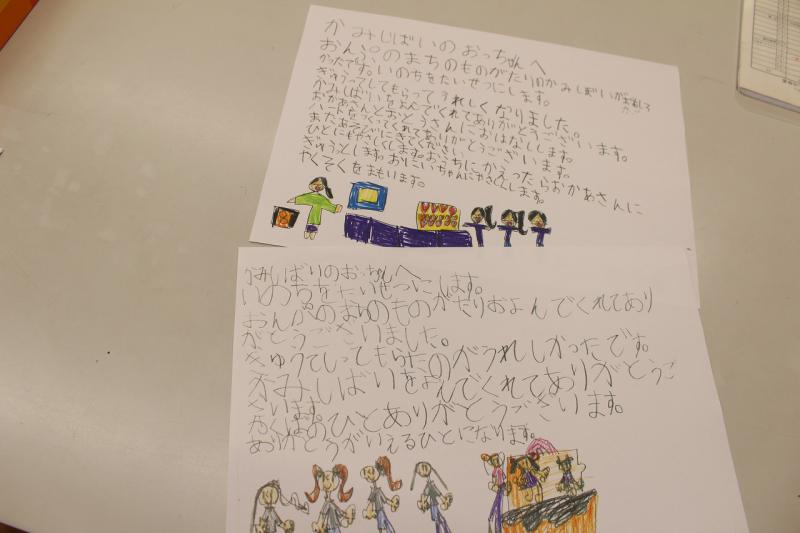 かみじばいのおっちゃんへ
おんぷのまちのものがたりのかみしばいがおもしろ
かったです。いのちをたいせつにします。
ぎゅうってしてもらってうれしくなりました。
かみしばいをよんでくれてありがとうございます。
おかあさんとおとうさんにおはなしします。
ハートをつくってくれてありがとうございます。
またあそびにきてください。
ひとにやさしくします。おうちにかえったらおかあさんに
ぎゅうとします。おにいちゃんにやさしくします。
やくそくをまもいます。
かみしばりのおっちゃんへ
いのちをたいせつにします。
おんがのまちのものがたりおよんでくれてあり
がとうございました。
ぎゅうていってもらたのがうれしかったです。
かみしばいをよんでくれてありがとうご
ざいます。
ひとありがとうございます。
ありがとうがいえるひとになります。